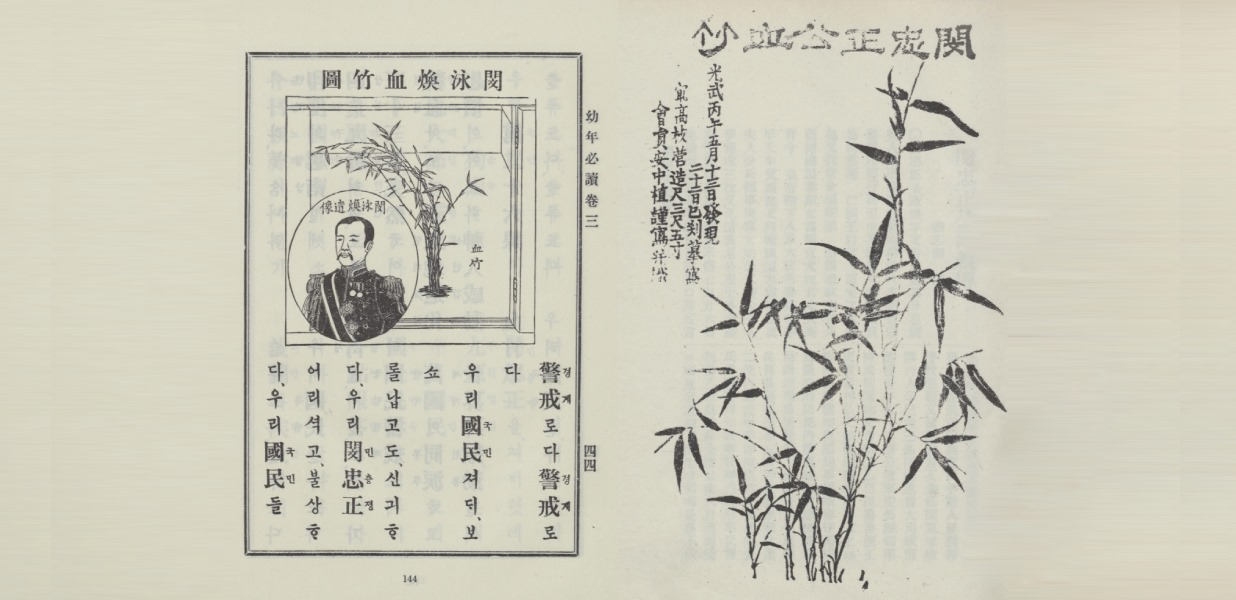 閔泳煥血竹圖
閔泳煥遺像
血竹
幼年必讀卷三
四四
警戒로다警戒로
경계
경계
다
우리國民져ᄃᆡ、보
국민
쇼
롤납고도、신긔ᄒᆞ
다우리閔忠正
민츙졍
어리셕고、불상ᄒᆞ
다、우리國民들
국민
144
閔忠正公血竹
光武丙午五月十三日發現
二十二日巳刻摹寫
高校營造尺三尺五寸
會員安中植謹寫